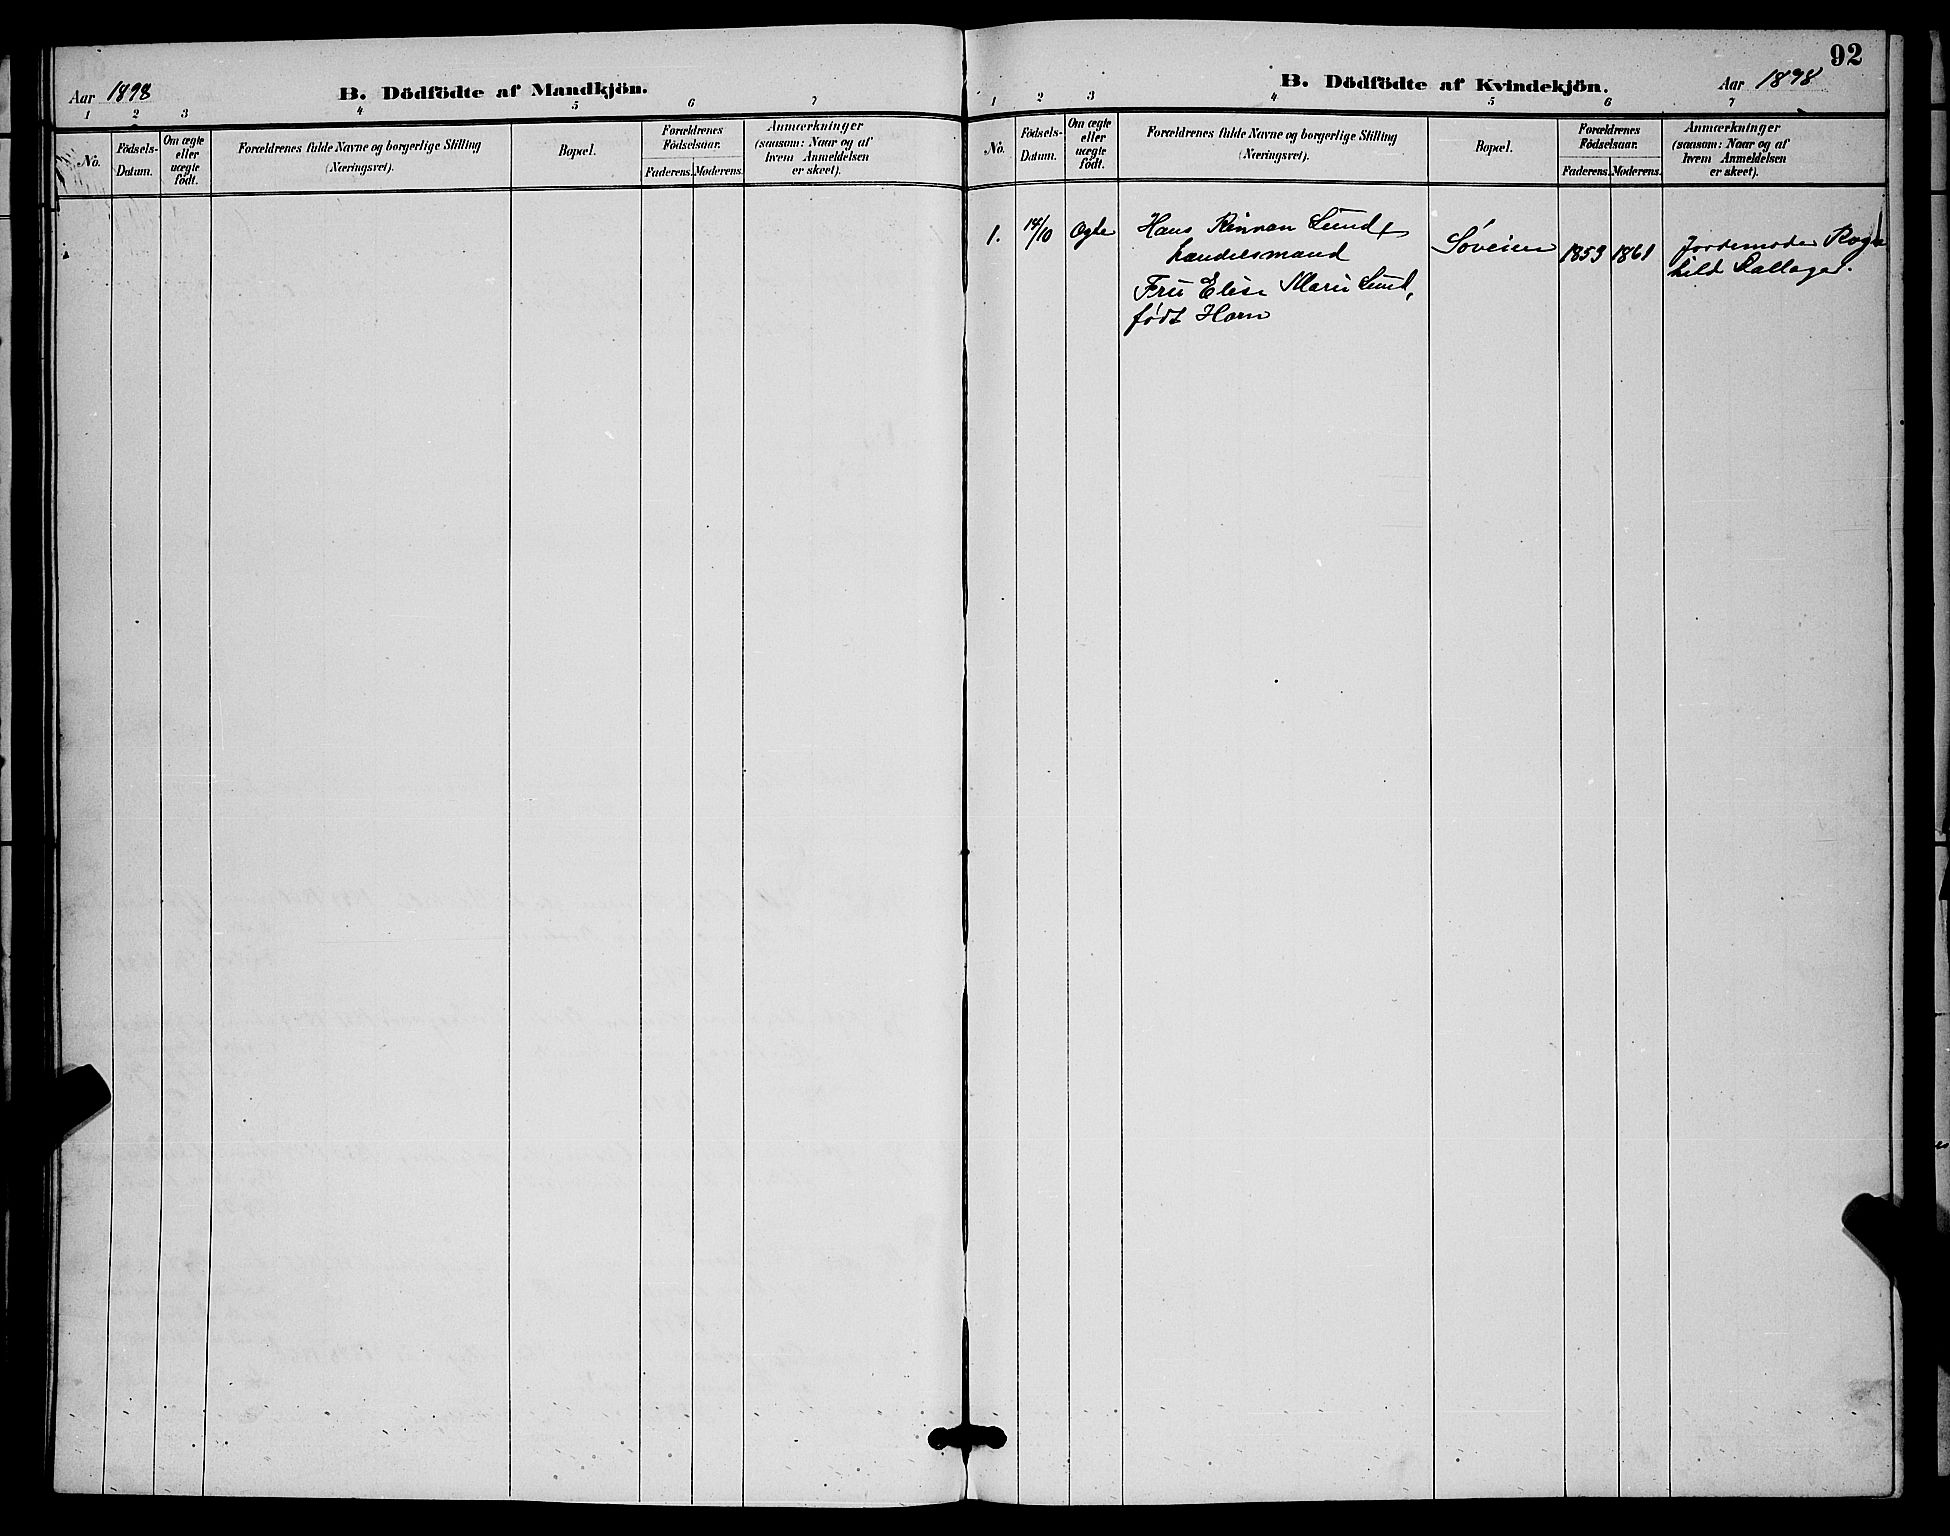 Aar 1898
B. Dödfödte af Mandkjön.
1 2 3 4 5 6 7
No.
Födsels-
Datum.
Om ægte
eller
uægte
født.
Forældrenes fulde Navne og borgerlige Stilling
(Næringsvei).
Bopæl.
Forældrenes
Födselsaar.
Faderens. Moderens.
Anmærkninger
(saasom: Naar og af
hvem Anmeldelsen
er skeet).
92
B. Dödfödte af Kvindekjön.
Aar 1898
1 2 3 4 5 6 7
No.
Födsels-
Datum.
Om ægte
eller
uægte
födt.
Forældrenes fulde Navne og borgerlige Stilling
(Næringsvei).
Bopæl.
Forældrenes
Födselsaar.
Faderens. Moderens.
Anmærkninger
(saasom: Naar og af
hvem Anmeldelsen
er skeet).
1. 14/10 Ogte Hans Rinvan Lund,
handelsmand
Fru Elise Marie Lund,
født Horn
Søveien 1853 1861 Jordemoder Ragn
hild